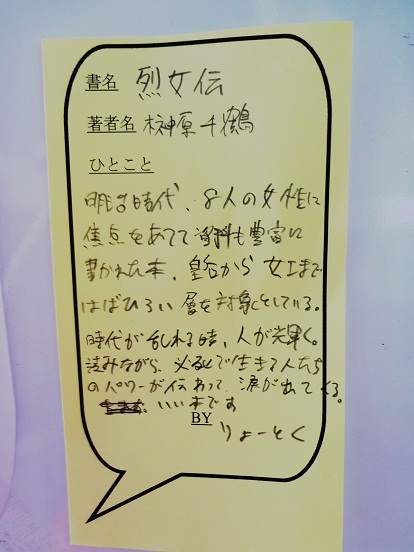 書名 烈女伝
著者名 榊原千鶴
ひとこと
明治時代、8人の女性に
焦点をあてて資料も豊富に
書かれた本。皇后から女工まで
はばひろい層を対象としている。
時代が乱れる時、人が光輝く。
読みながら、必死で生きる人たち
のパワーが伝わって、涙が出てくる。
いい本です
BY
りょーとく